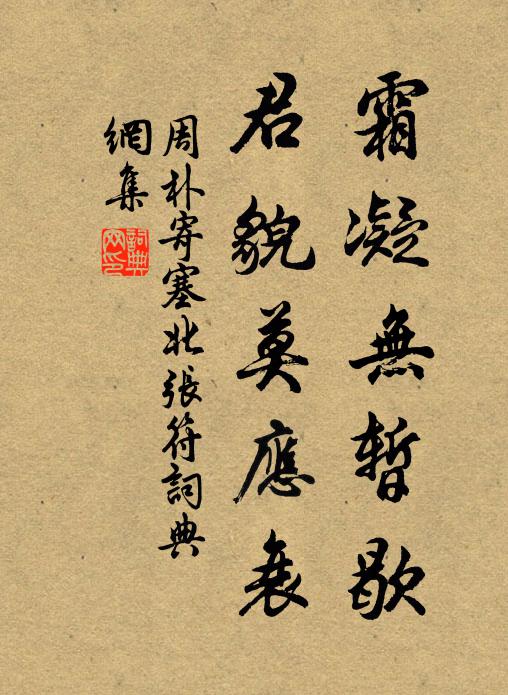 霜凝無暫歇
君貌莫應衰
周朴寄塞北張符詞典
網集
詞典網印